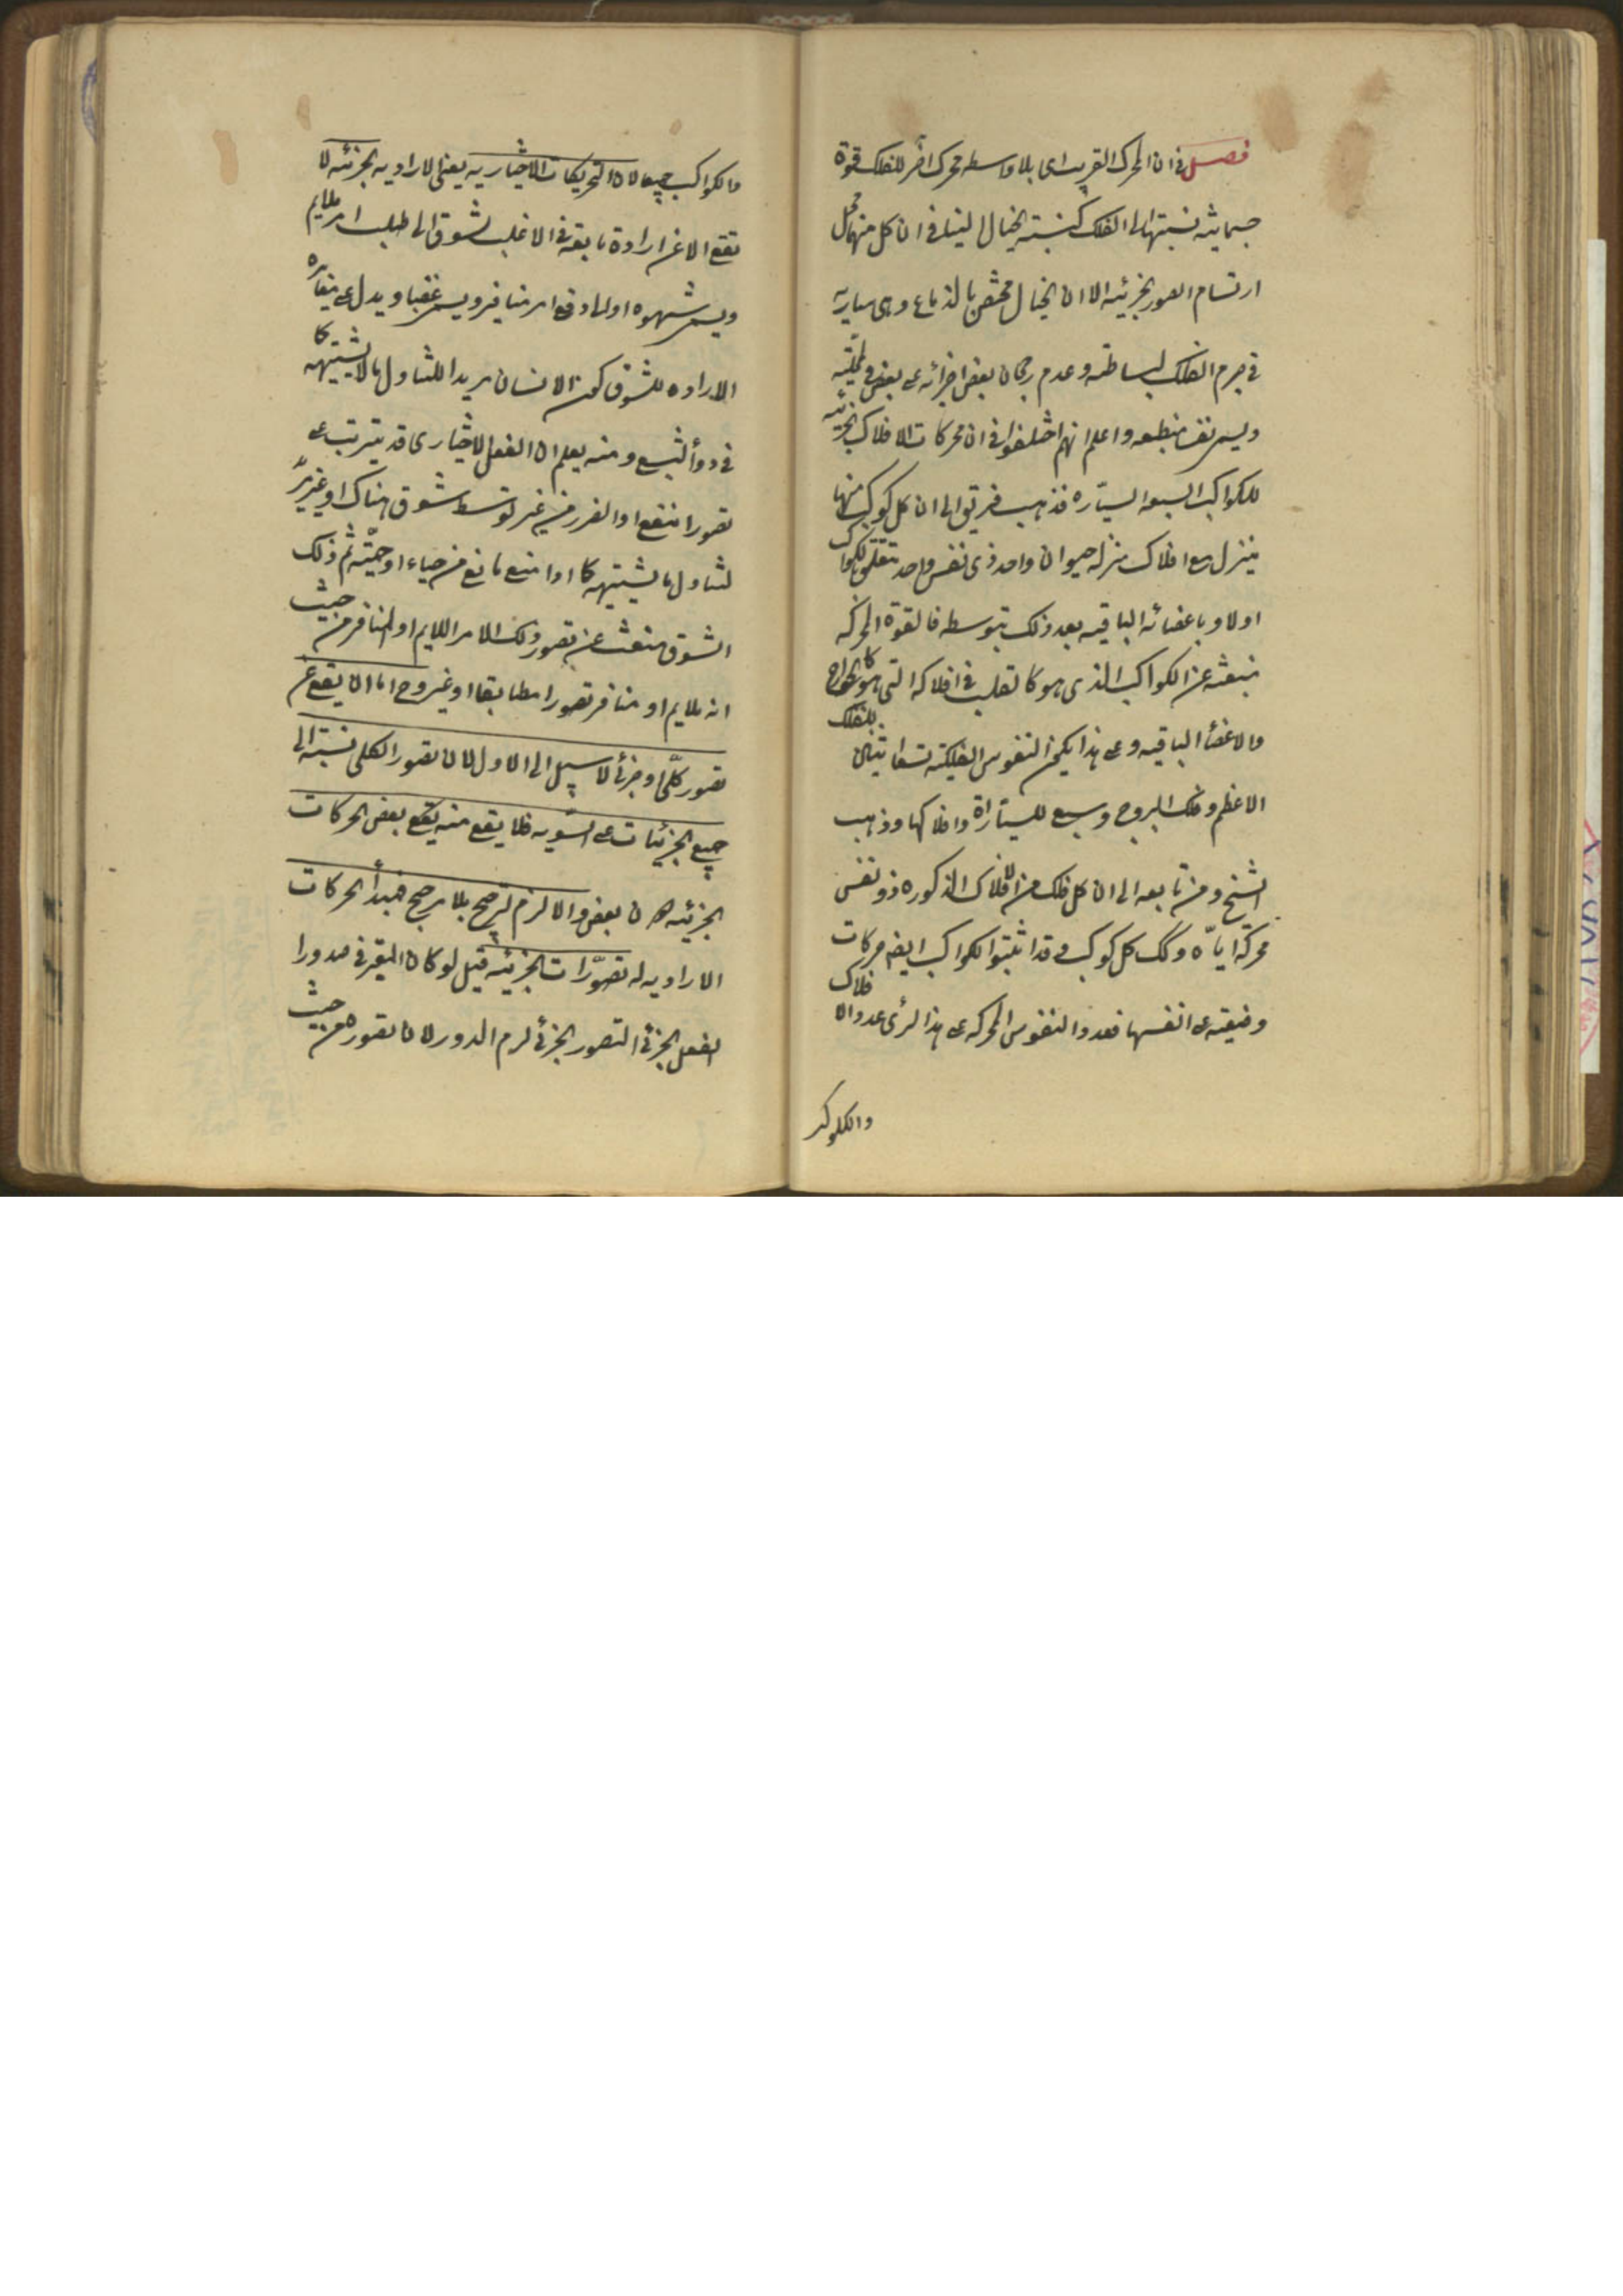 فصل في ان المحرك القريب اى بلا واسطه محرك اخر للفلك قوة
جسمانيه نسبتها الى الفلك كنسبة الخيال الينا فى ان كل منهما محل
ارتسام الصور الجزئيه الا ان الخيال مختص بالدماع وهى ساريه
فى جرم الفلك لبساطته وعدم رجحان بعض اجزائه على بعض فى المحليه
ويسمى نفسا منطبعه واعلم انهم اختلفوا فى ان محركات الافلاك الجزئيه
للكواكب السبعه السياره فذهب فريق الى ان كل كوكب منها
ينزل مع افلاكه منزله حيوان واحد ذى نفس واحده تتعلق بالكوكب
اولا وباعضائه الباقيه بعد ذلك بتوسطه فالقوة المحركه
منبعثه عن الكواكب الذى هو كالقلب فى افلاكه التى هى كالجوارح
والاعضأ الباقيه وعلى هذا يكون النفوس الفلكيه تسعا اثنتان للفلك
الاعظم وفلك البروج وسبع للسياراة وافلاكها وذهب
الشيخ ومن تابعه الى ان كل فلك من الافلاك المذكوره ذو نفس
محركة اياه وكك كل كوكب وقد اثبتوا لكواكب ايضا حركات
وضيعيته على انفسها فعدد النفوس المحركه على هذا لرئى عدد الافلاك
والكواكب
والكواكب جميعا لان التحريكات الاختياريه يعنى الاراديه الجزئيه لا
تقع الا عن ارادة تابعة فى الاغلب لشوق الى طلب امر ملايم
ويسمى شهوه او الى دفع امر منافر ويسمى غضبا ويدل على مغايره
الاراده للشوق كون الانسان مريدا للتناول ما لا يشتهيه كما
فى دوأ البشع ومنه يعلم ان الفعل الاختيارى قد يترتب على
تصور النفع او الضرر فيه من غير توسط شوق هناك او غير مريد
لتناول ما يشتهيه كما اذا منع مانع من حياء او حمية ثم ذلك
الشوق منبعث عن تصور ذلك الامر الملايم او المنافر من حيث
انه ملايم او منافر تصورا مطابقا او غيره وح اما ان يقع عن
تصور كلى او جزئى لا سبيل الى الاول لان تصور الكلى نسبته الى
جميع الجزئيات على السويه فلا يقع منه يقع بعض الحركات
الجزئيه دون بعض والا لزم ترجح بلا مرجح فمبدأ الحركات
الاراديه له تصورات الجزئيه قيل لو كان المعتبر فى صدورا
الفعل الجزئى التصور الجزئى لزم الدور لان تصوره من حيث